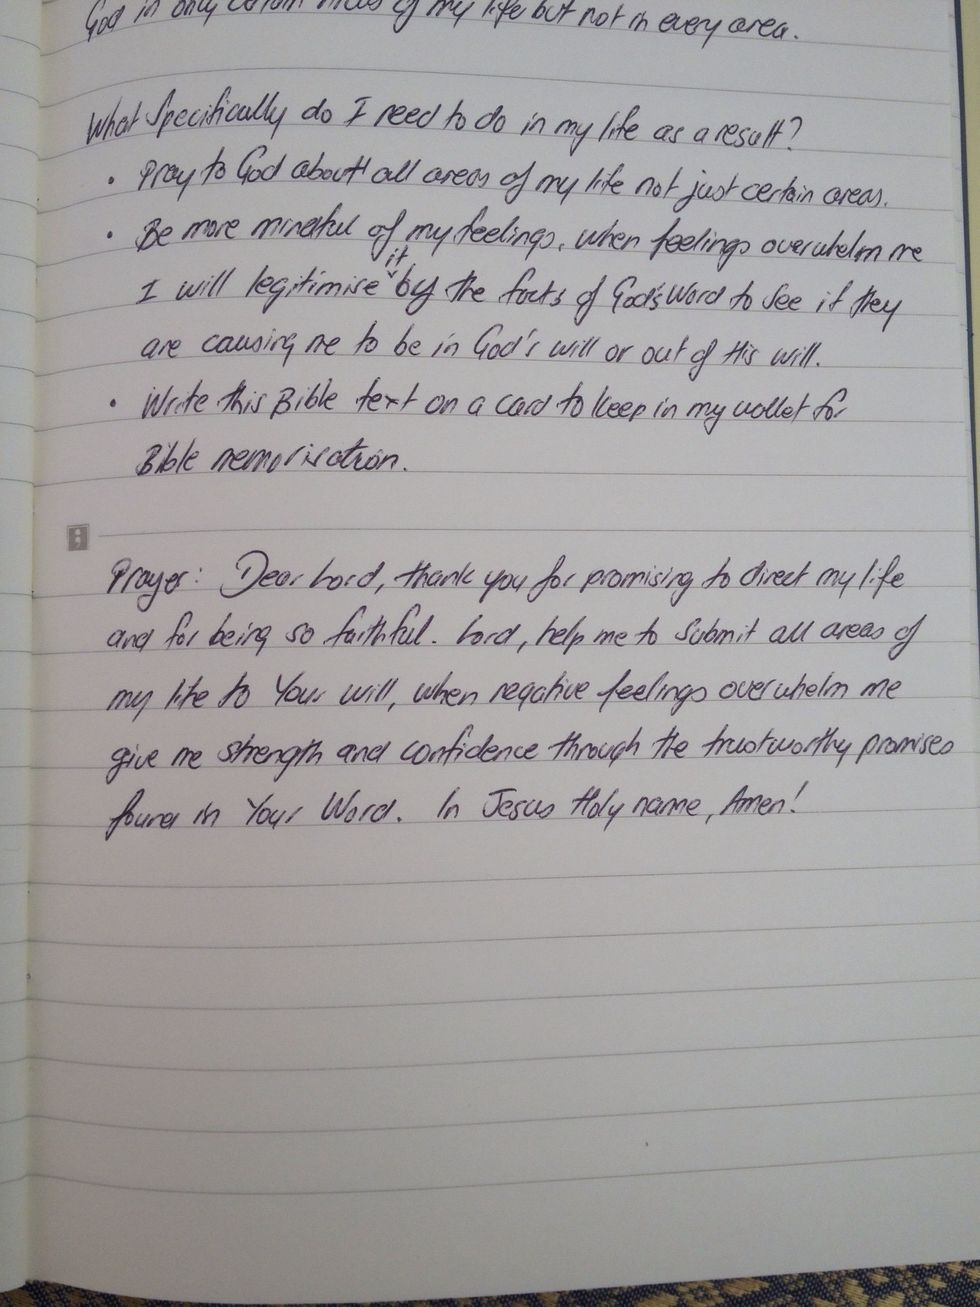 God in only certain areas of my life but not in every area.
What specifically do I need to do in my life as a result?
• Pray to God about all areas of my life not just certain areas.
• Be more mindful of my feelings, when feelings overwhelm me
I will legitimise it by the facts of God's Word to see if they
are causing me to be in God's will or out of His will.
• Write this Bible text on a card to keep in my wallet for
Bible memorisation.
Prayer: Dear Lord, thank you for promising to direct my life
and for being so faithful. Lord, help me to submit all areas of
my life to Your will, when negative feelings overwhelm me
give me strength and confidence through the trustworthy promises
found in Your Word. In Jesus Holy name, Amen!